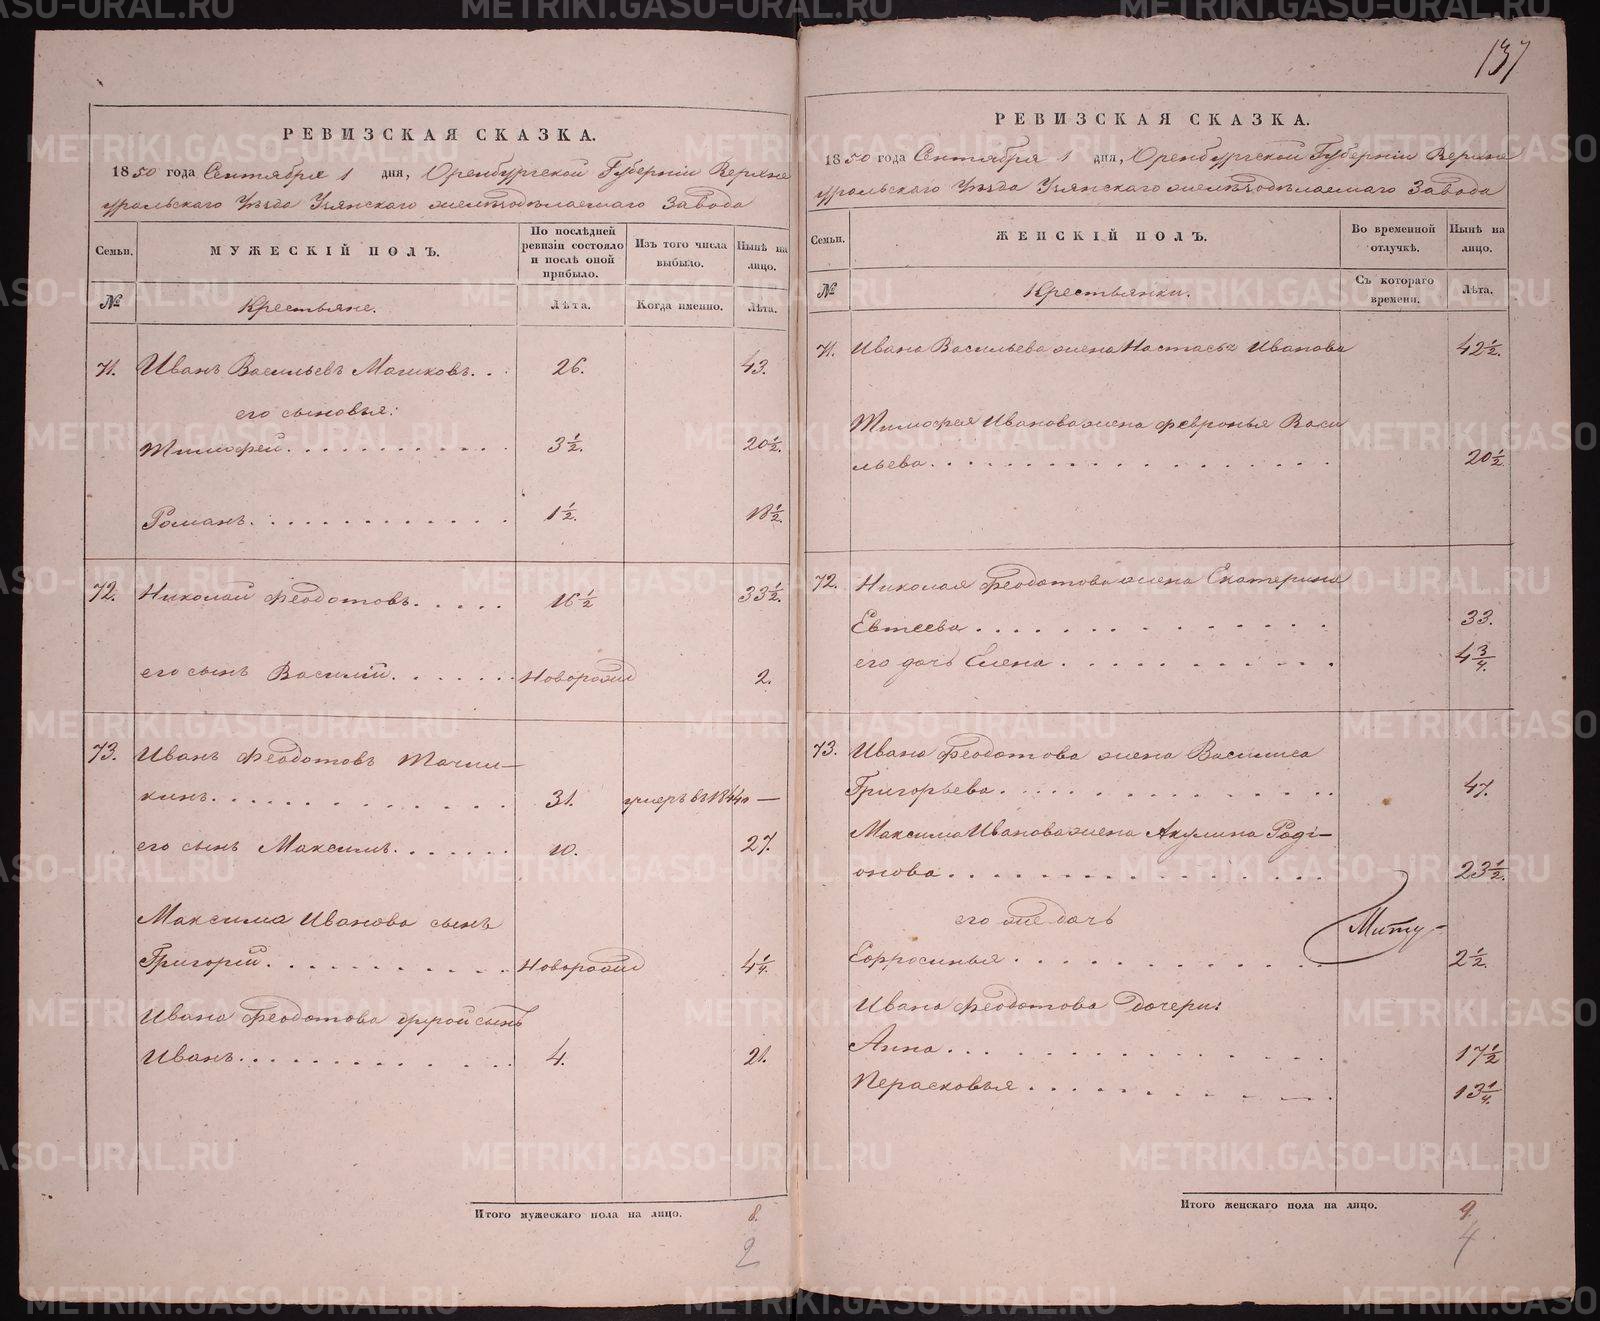 137
РЕВИЗСКАЯ СКАЗКА.
1850 года Сентября 1 дня, Оренбургской Губерніи Верхне
уральскаго Уѣзда Узянскаго желѣзодѣлаемаго Завода
Семьи.
МУЖЕСКІЙ ПОЛЪ.
По послѣдней ревизіи состояло и послѣ оной прибыло.
Изъ того числа выбыло.
Нынѣ на лицо.
№
Крестьяне.
Лѣта.
Когда именно.
Лѣта.
71. Иванъ Васильевъ Магиковъ. 26. 43.
его сыновья:
Тимофей. 3½. 20½.
Романъ. 1½. 18½.
72. Николай Феодотовъ. 16½ 33½.
его сынъ Василій. Новорожд 2.
73. Иванъ Феодотовъ Точил–
кинъ. 31. умеръ въ 1844 —
его сынъ Максимъ. 10. 27.
Максима Иванова сынъ
Григорій. Новорожд 4¼.
Ивана Феодотова другой сынъ
Иванъ. 4. 21.
Итого мужескаго пола на лицо. 8.
2
РЕВИЗСКАЯ СКАЗКА.
1850 года Сентября 1 дня, Оренбургской Губерніи Верхне
уральскаго Уѣзда Узянскаго желѣзодѣлаемаго Завода
Семьи.
ЖЕНСКІЙ ПОЛЪ.
Во временной отлучкѣ.
Нынѣ на лицо.
№
Крестьянки.
Съ котораго времени.
Лѣта.
71. Ивана Васильева жена Настасья Иванова 42½.
Тимофея Иванова жена Февронья Васи
льева. 20½
72. Николая Феодотова жена Екатерина
Евтеева. 33.
его дочь Елена. 4¾.
73. Ивана Феодотова жена Василиса
Григорьева. 47.
Максима Иванова жена Акулина Роді–
онова. 23½.
его же дочь
Еффросинья. 2½.
Ивана Феодотова дочери:
Анна. 17½
Перасковья. 13¼.
Итого женскаго пола на лицо. 9.
4
METRIKI.GASO-URAL.RU